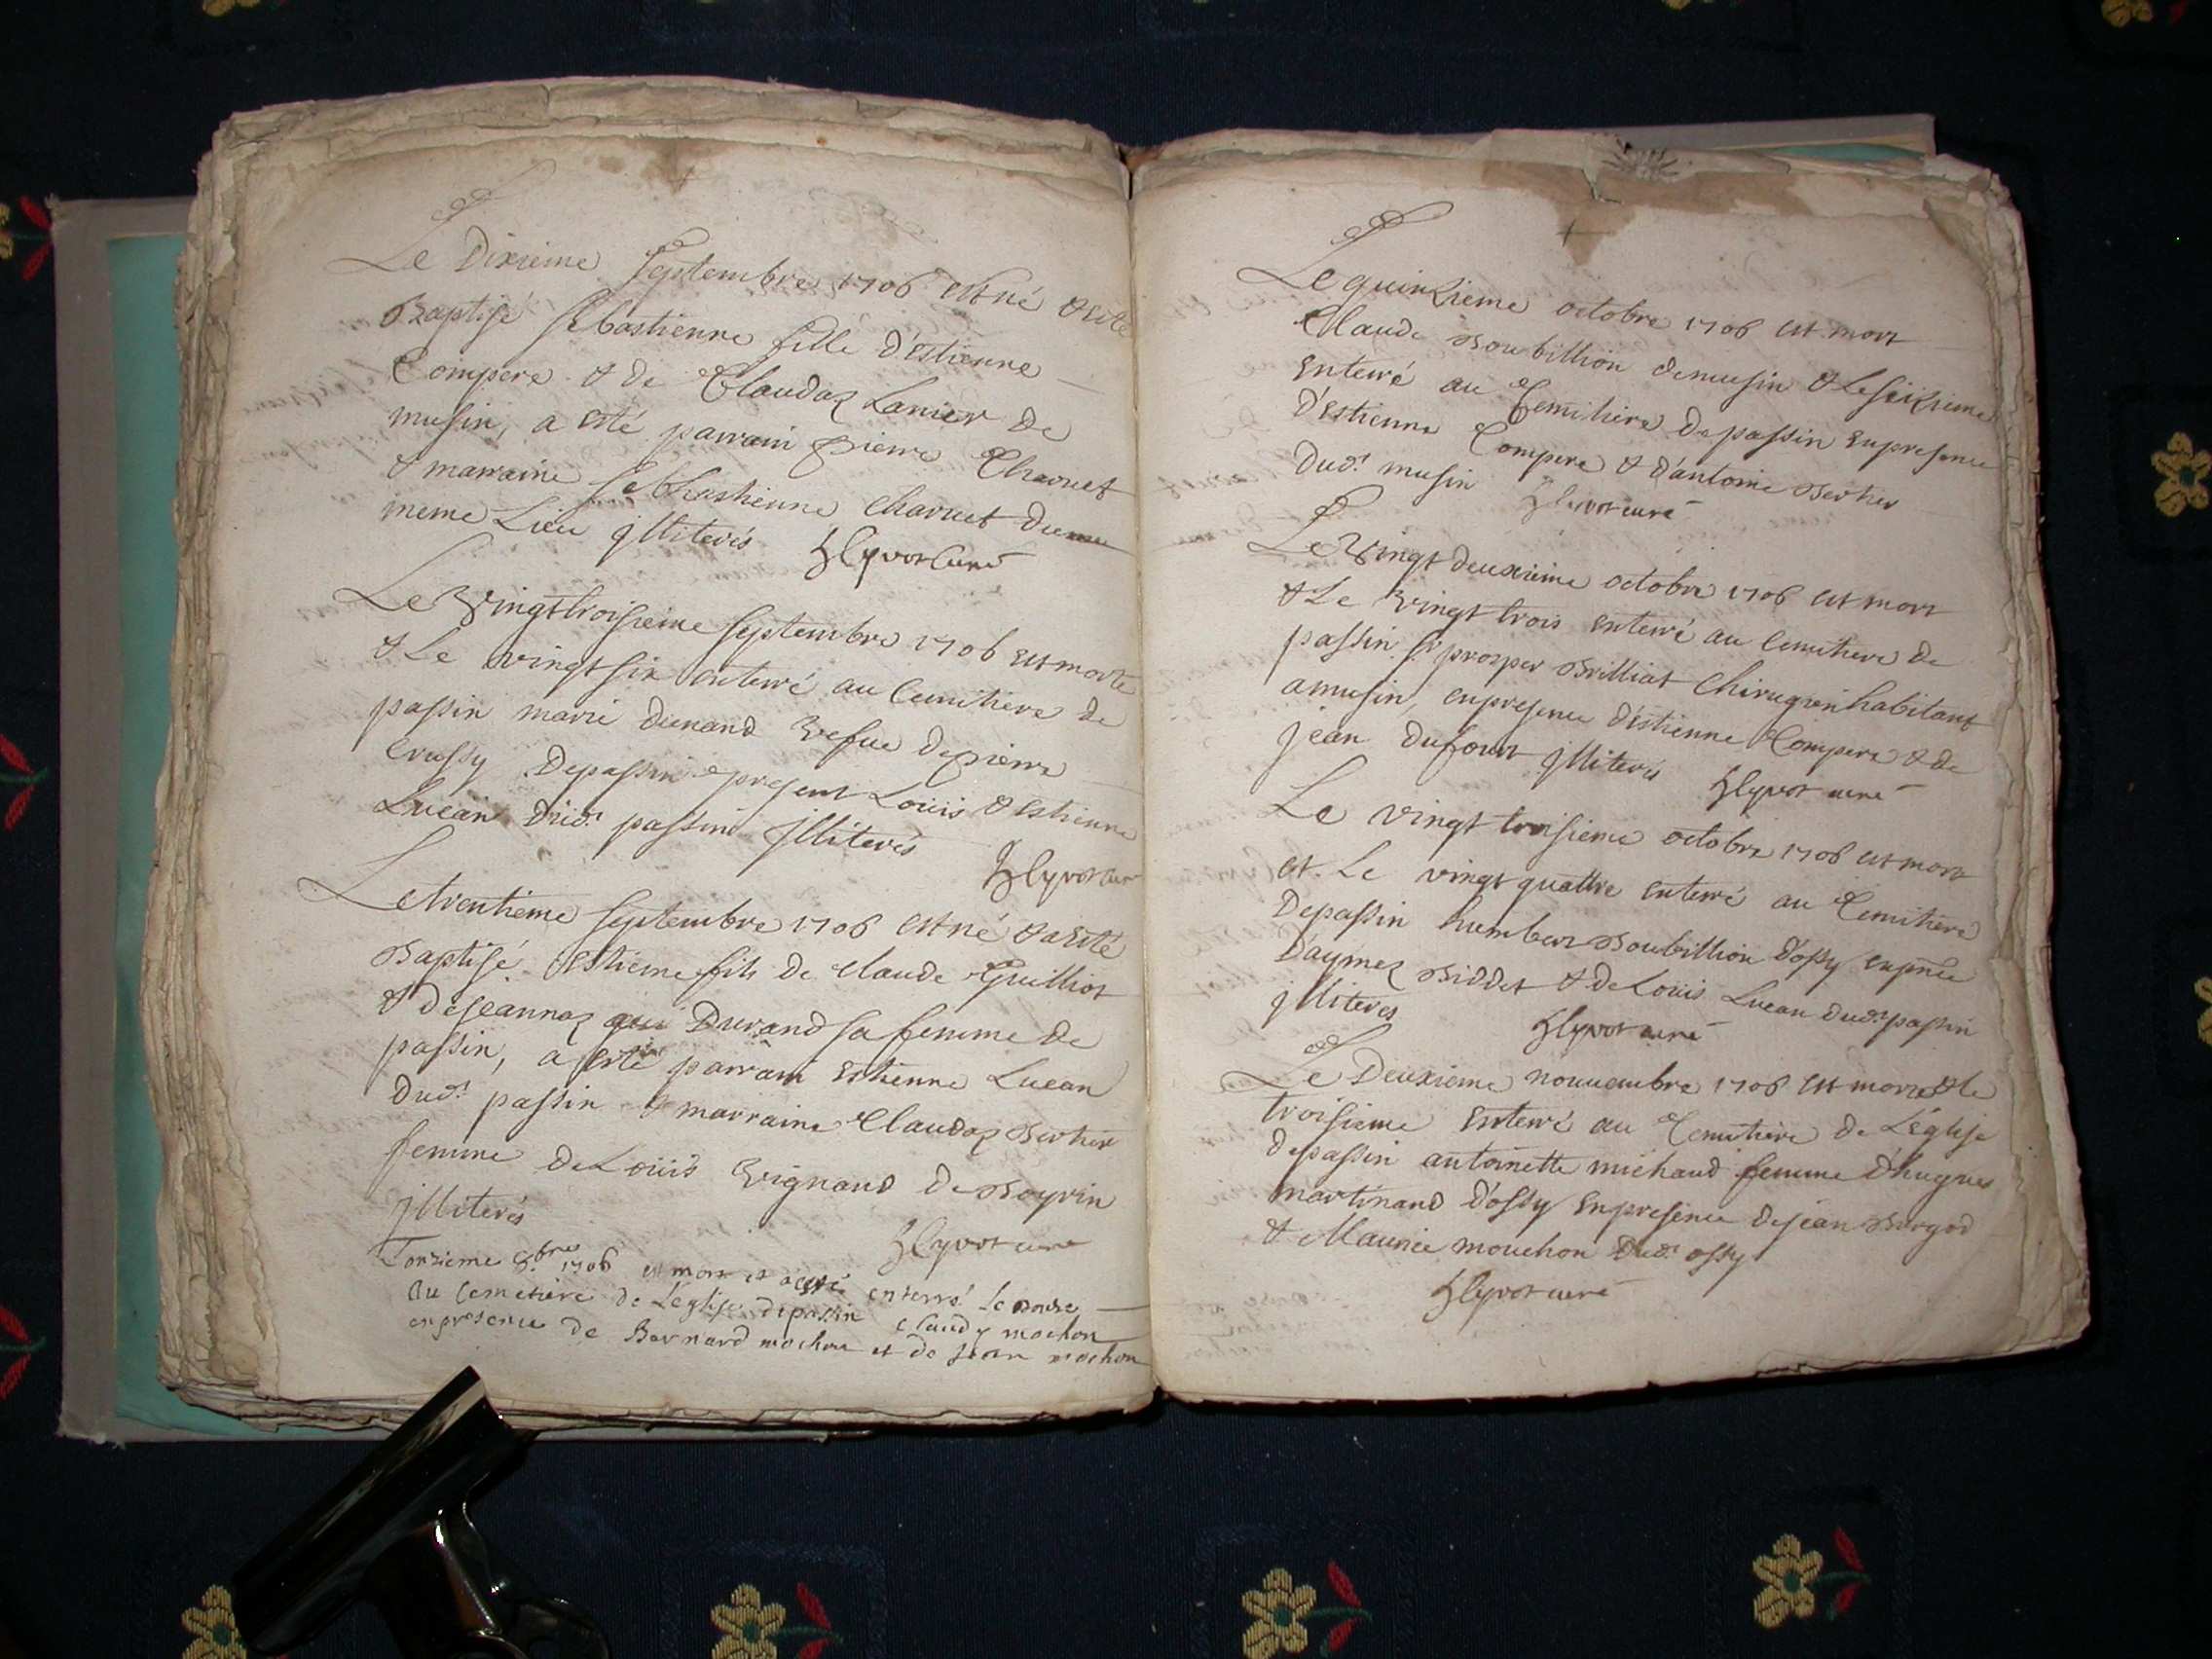 Le Dixieme Septembre 1706 est né & esté
Baptisé sebastienne fille d'estienne
Compere & de Claudaz Lanier de
musin, a esté parrain pierre Charvet
& marraine sebastienne Charvet du
meme Lieu jlliterés Hlyvot Curé
Le Vingt troisieme septembre 1706 est morte
& Le vingt six enterré au Cemitiere de
passin marie Dunand Vefue de pierre
Crussy De passin present Louis & Estienne
Lucan dud.t passin jlliterés
Hlyvot cur
Le trentieme septembre 1706 est né & a esté
Baptisé Estienne fils de claude Guilliot
& de jeannaz Durand sa femme de
passin, a esté parrain Estienne Lucan
dud.t passin & marraine Claudaz Berthier
femme de Loüis Vignand de Boyrin
jlliterés Hlyvot cure
Lonzieme 8.bre 1706 est mort et a esté enterré Le douze
au Cemetiere de L'eglise de passin claudy mochon
en presence de Bernard mochon et de jean mochon
Le quinzieme octobre 1706 est mort
Claude Boubillion de musin & Le seizieme
enterré au Cemitiere de passin en presence
d'Estienne Compere & d'antoine Berthier
dud.t musin Hlyvot curé
Le Vingt deuxieme octobre 1706 est mort
& Le vingt trois enterré au Cemitiere de
passin s.r prosper Brilliat Chirugien habitant
a musin, en presence d'estienne Compere & de
jean dufour jlliterés Hlyvot curé
Le vingt troisieme octobre 1706 est mort
et Le vingt quattre enterré au Cemitiere
De passin humber Boubillion d'ossy en pnce
D'aymez Biddet & de Louis Lucan dud.t passin
jlliteres Hlyvot curé
Le Deuxieme nouuembre 1706 est morte & le
troisieme enterré au Cemitiere de L'églisе
de passin antoinette michaud femme d'hugues
martinand d'ossy en presence de jean Burgod
& Maurice mouchon dud.t ossy
Hlyvot curé